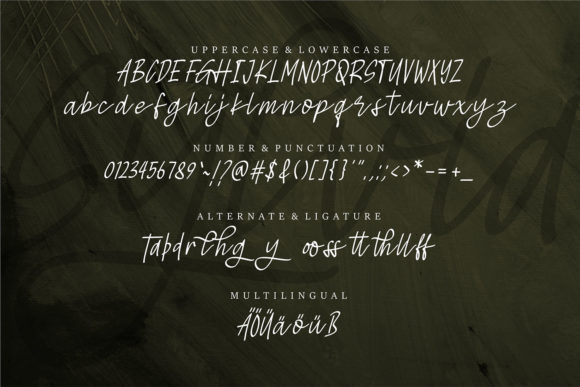 UPPERCASE & LOWERCASE
ABCDEFGHIJKLMNOPQRSTUVWXYZ
abcdefghijklmnopqrstuvwxyz
NUMBER & PUNCTUATION
0123456789`~!?@#$&()[]{}'",.:;<>*-=+_
ALTERNATE & LIGATURE
MULTILINGUAL
ÄÖÜäöüß